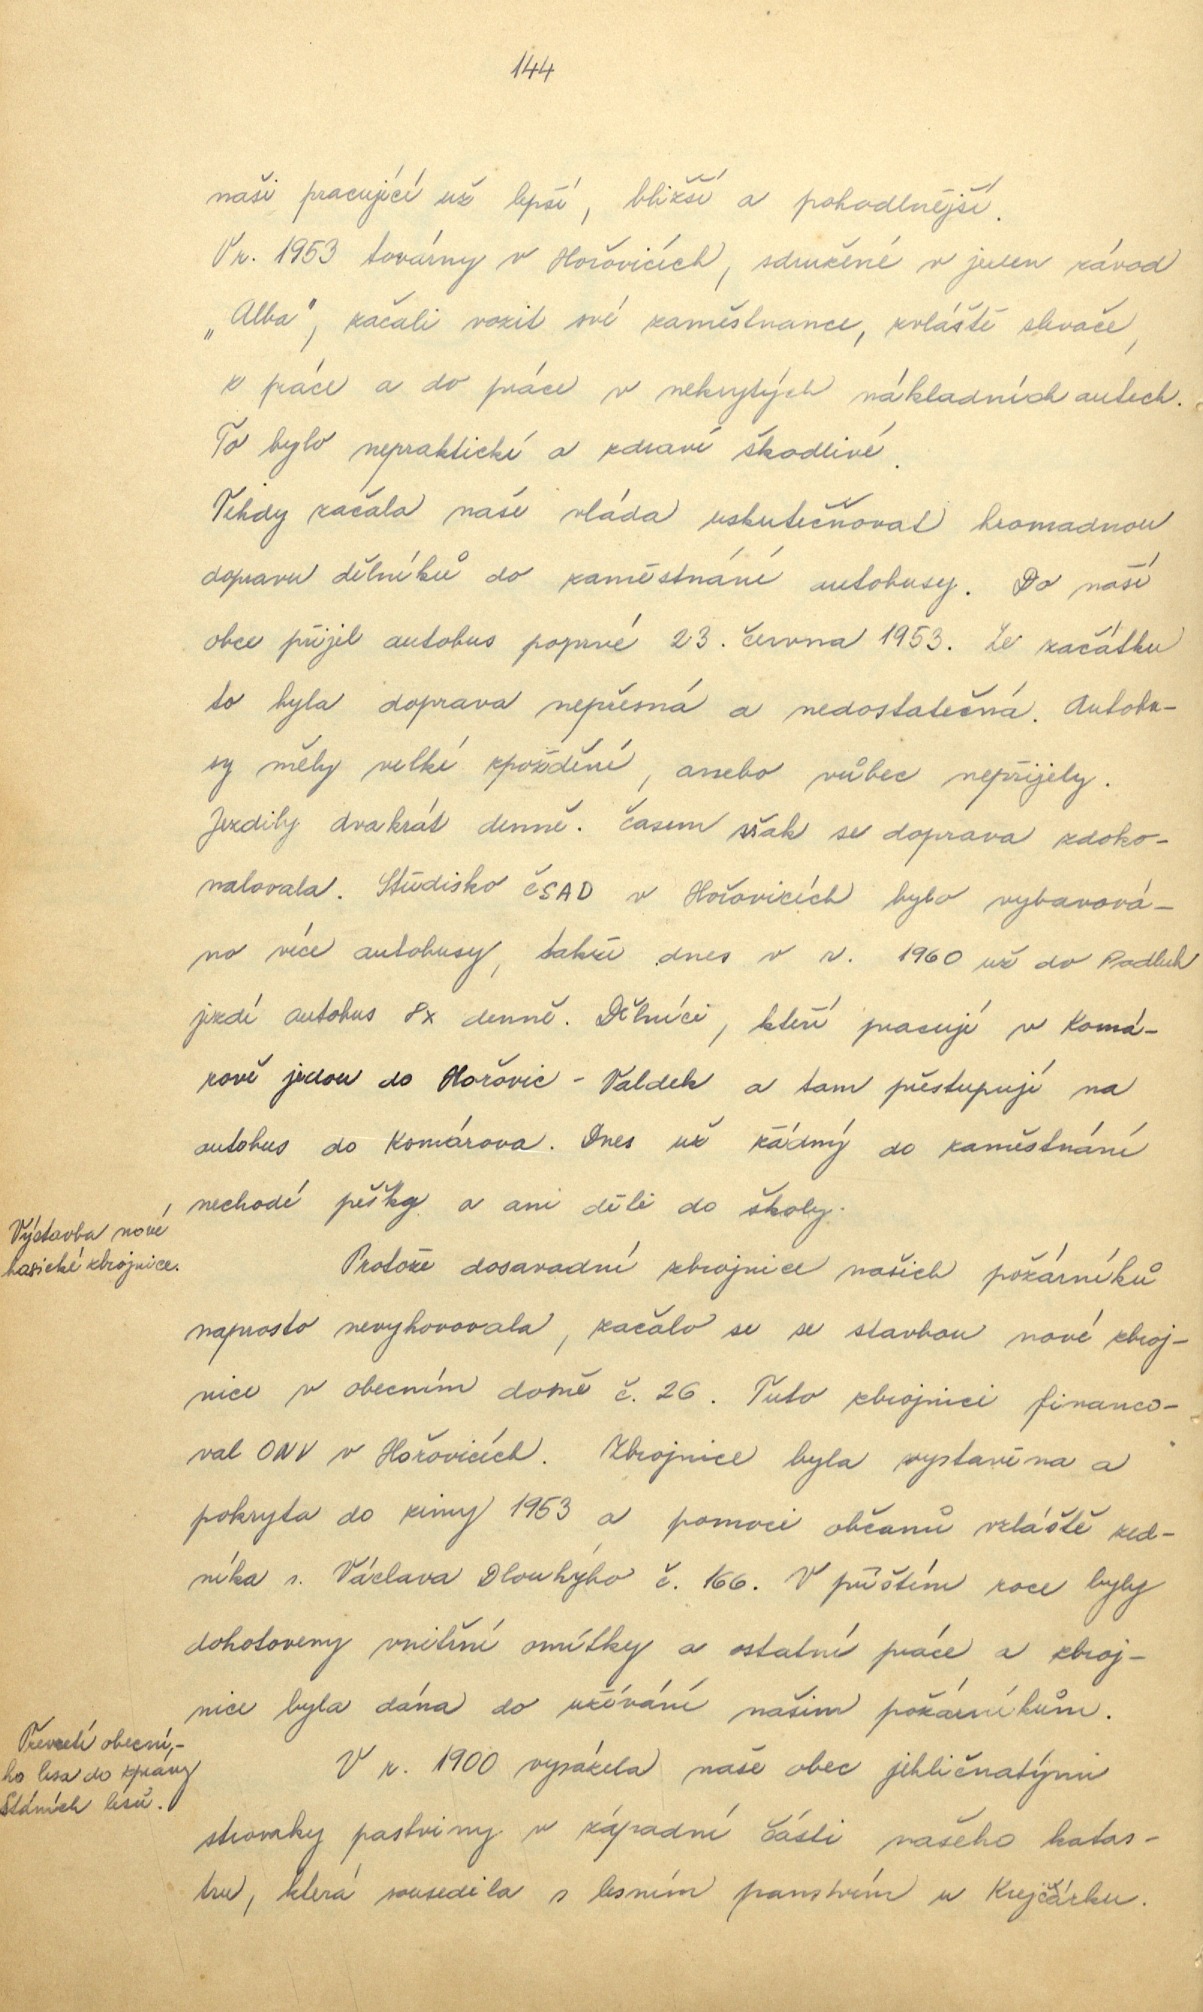 144
naši pracující už lepší, bližší a pohodlnější.
V r. 1953 továrny v Hořovicích, sdružené v jeden závod
„Alba", začali vozit své zaměstnance, zvláště slevače,
z práce a do práce v nekrytých nákladních autech.
To bylo nepraktické a zdraví škodlivé.
Tehdy začala naše vláda uskutečňovat hromadnou
dopravu dělníků do zaměstnání autobusy. Do naší
obce přijel autobus poprvé 23. června 1953. Ze začátku
to byla doprava nepřesná a nedostatečná. Autobu-
sy měly velké zpoždění, anebo vůbec nepřijely.
Jezdily dvakrát denně. Časem však se doprava zdoko-
nalovala. Středisko ČSAD v Hořovicích bylo vybavová-
no více autobusy, takže dnes v r. 1960 už do Podluh
jezdí autobus 8x denně. Dělníci, kteří pracují v Komá-
rově jedou do Hořovic - Valdek a tam přestupují na
autobus do Komárova. Dnes už žádný do zaměstnání
nechodí pěšky a ani děti do školy.
Výstavba nové
hasické zbrojnice.
Protože dosavadní zbrojnice našich požárníků
naprosto nevyhovovala, začalo se se stavbou nové zbroj-
nice v obecním domě č. 26. Tuto zbrojnici financo-
val ONV v Hořovicích. Zbrojnice byla vystavěna a
pokryta do zimy 1953 a pomoci občanů vzláště zed-
níka s. Václava Dlouhýho č. 166. V příštím roce byly
dohotoveny vnitřní omítky a ostatní práce a zbroj-
nice byla dána do užívání našim požárníkům.
Převzetí obecní,-
ho lesa do zprávy
Státních lesů.
V r. 1900 vysázela naše obec jehličnatými
stromky pastviny v západní části našeho katas-
tru, která sousedila s lesním panstvím u Krejčárku.